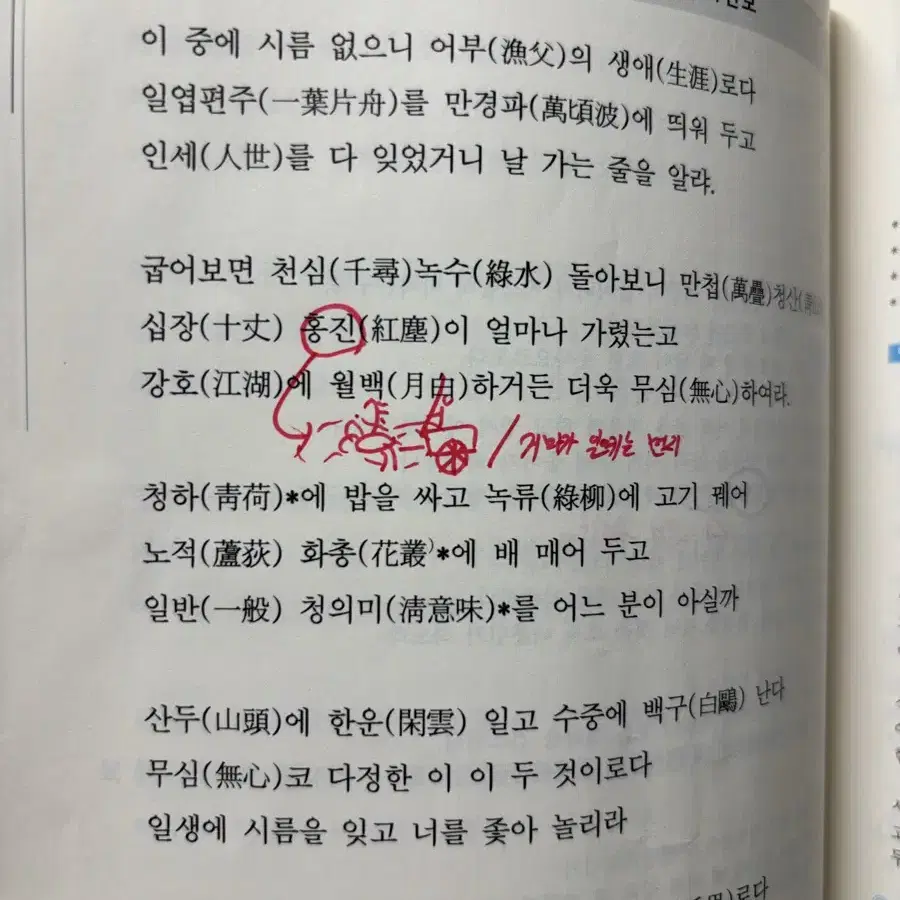 이 중에 시름 없으니 어부(漁父)의 생애(生涯)로다
일엽편주(一葉片舟)를 만경파(萬頃波)에 띄워 두고
인세(人世)를 다 잊었거니 날 가는 줄을 알랴.
굽어보면 천심(千尋)녹수(綠水) 돌아보니 만첩(萬疊)청산
십장(十丈) 홍진(紅塵)이 얼마나 가렸는고
강호(江湖)에 월백(月白)하거든 더욱 무심(無心)하여라.
청하(靑荷)*에 밥을 싸고 녹류(綠柳)에 고기 꿰어
노적(蘆荻) 화총(花叢)*에 배 매어 두고
일반(一般) 청의미(淸意味)*를 어느 분이 아실까
산두(山頭)에 한운(閑雲) 일고 수중에 백구(白鷗) 난다
무심(無心)코 다정한 이 이 두 것이로다
일생에 시름을 잊고 너를 좇아 놀리라
로다